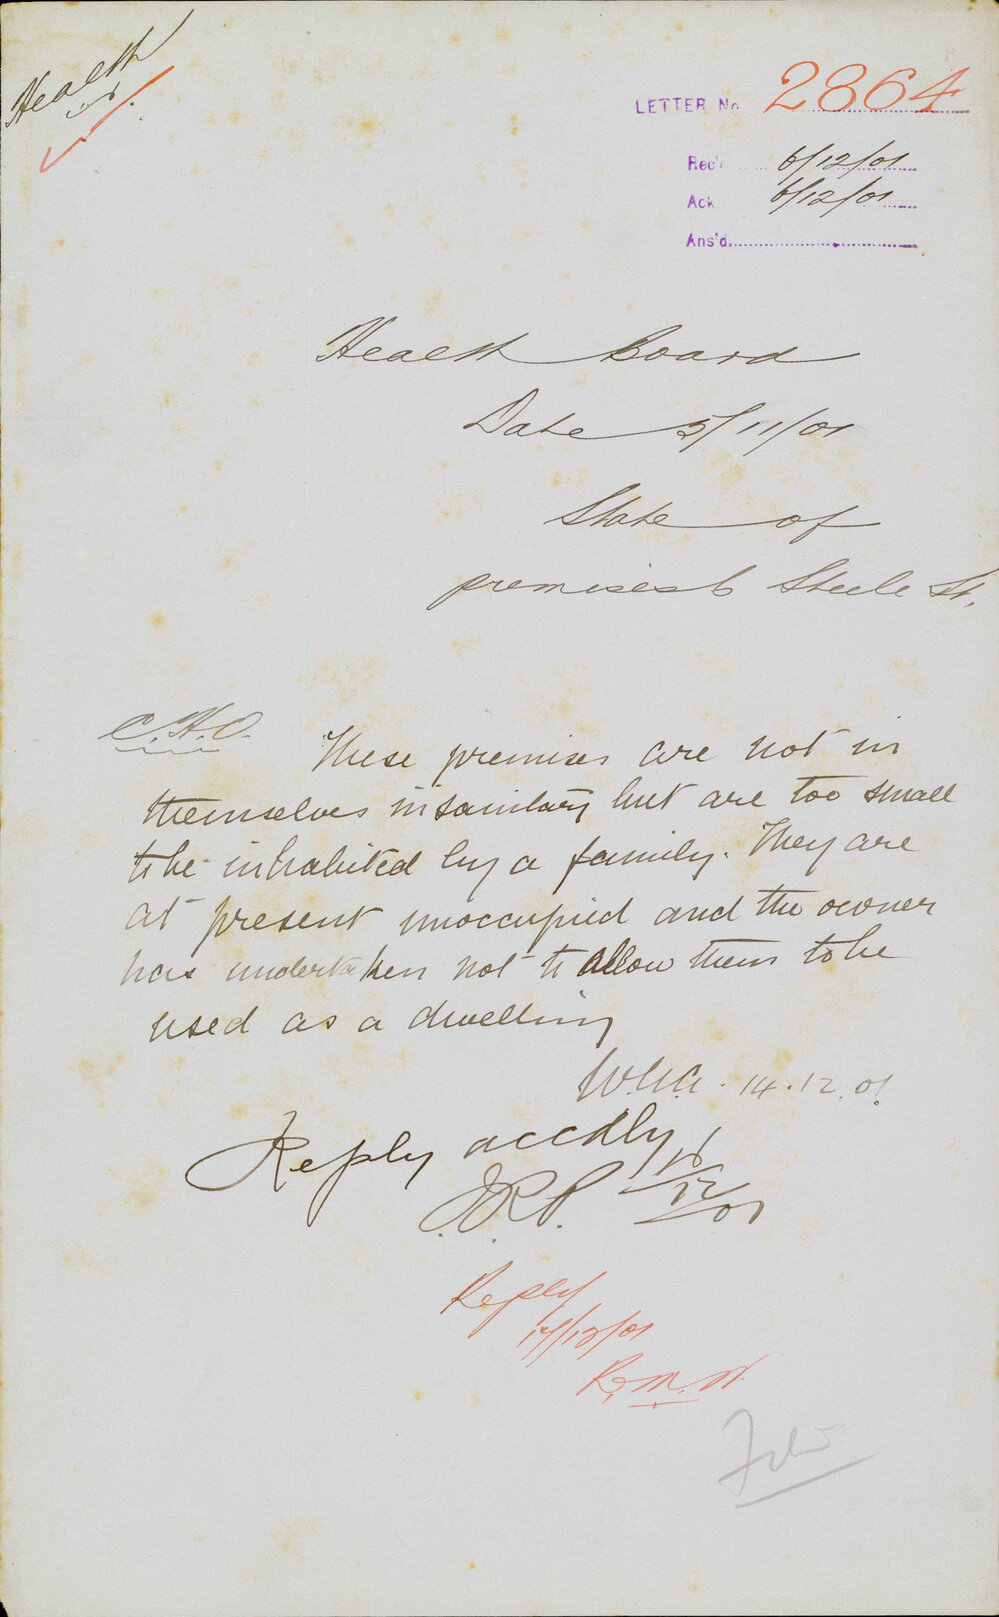 Health
LETTER No 2864
Rec'd 6/12/01
Ack 6/12/01
Ans'd
Health Board
Date 5/11/01
State of
premises 6 Steele St.
C.H.O.
These premises are not in
themselves insanitary but are too small
to be inhabited by a family. They are
at present unoccupied and the owner
has undertaken not to allow them to be
used as a dwelling
14.12.01
Reply accdly
J.R.P. 16/12/01
Reply
17/12/01
File